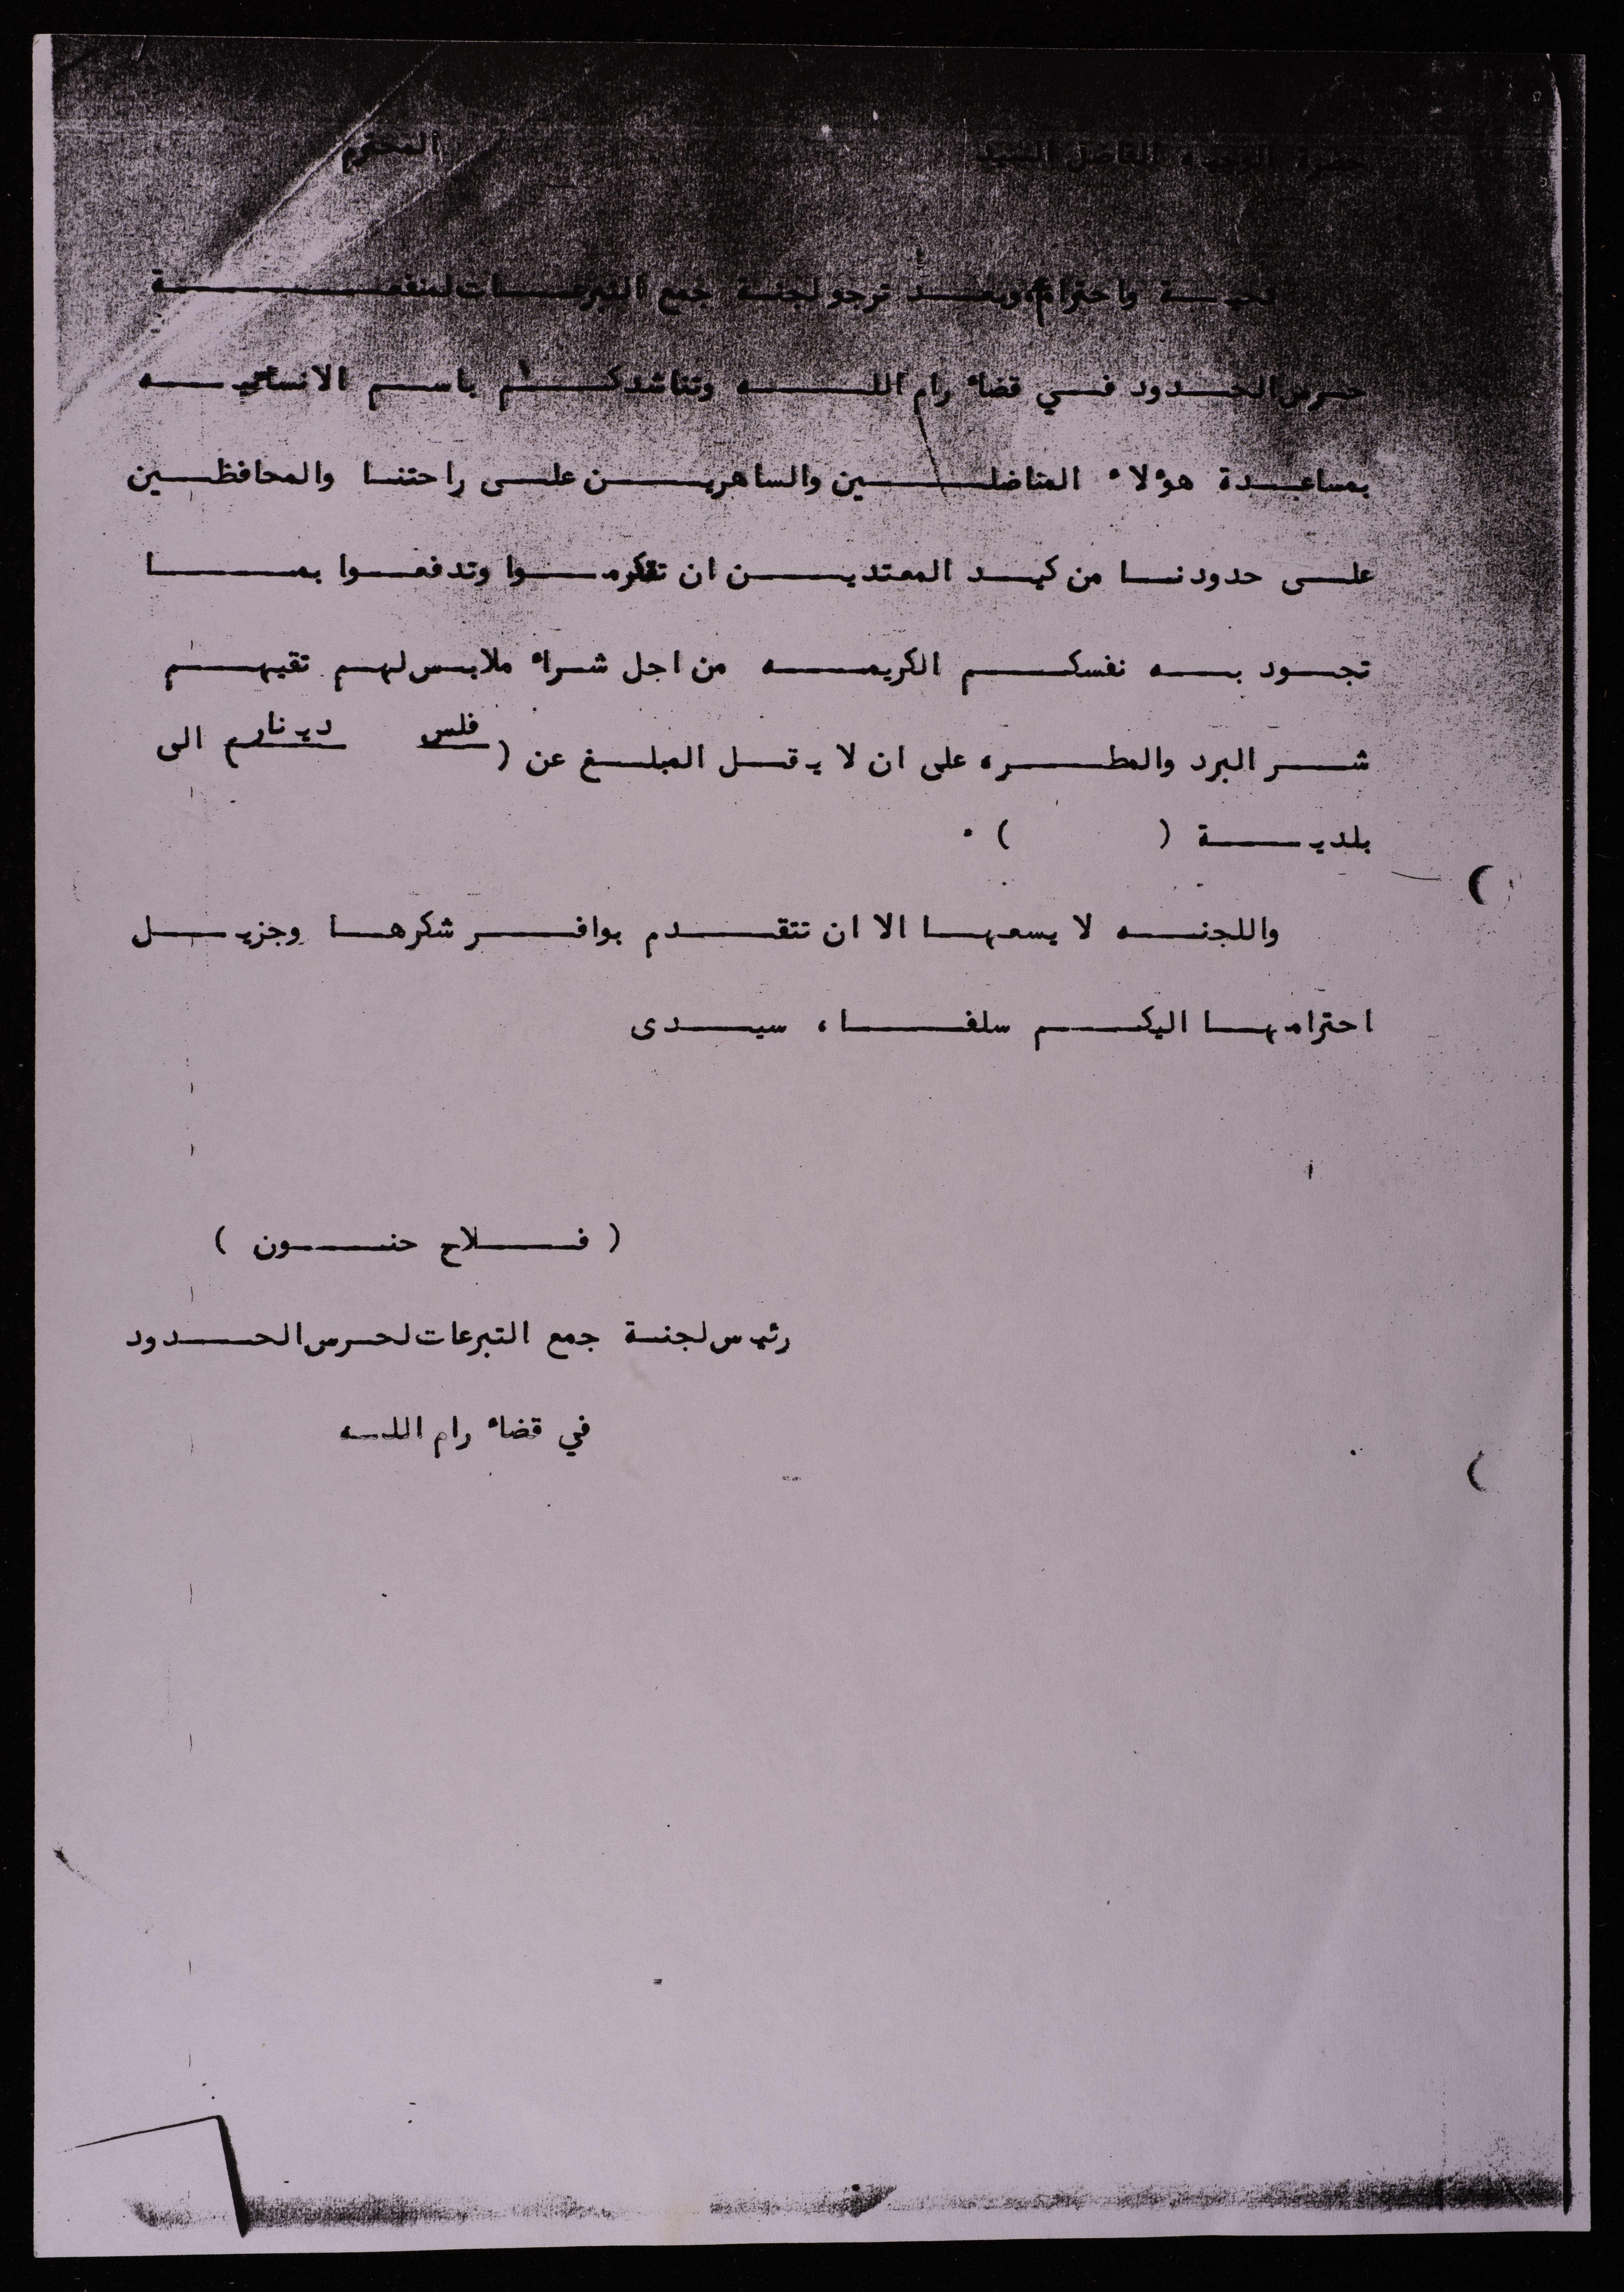 حضرة الوجيه الفاضل السيد المحترم
تحيــة واحتراما، وبعــد ترجو لجنـة جمع التبرعــات لمنفعــة
حـرس الحــدود فـي قضاء رام اللــه وتناشدكــم باسـم الانسانيــه
بمساعــدة هؤلاء المناضلــين والساهريــن علـى راحتنـا والمحافظـين
علـى حدودنـا من كيـد المعتديــن ان تتكرمــوا وتدفعـوا بمــا
تجـود بــه نفسكــم الكريمــه من اجل شـراء ملابـس لهـم تقيهــم
شــر البرد والمطــره على ان لا يقـل المبلـغ عن ( فلس دينار ) الى
بلديــة ( ) ٠
واللجنــه لا يسعهـا الا ان تتقــدم بوافــر شكرهـا وجزيــل
احترامهـا اليكــم سلفــا، سيــدى
( فــلاح حنــون )
رئيس لجنـة جمع التبرعات لحـرس الحــدود
في قضاء رام اللـه